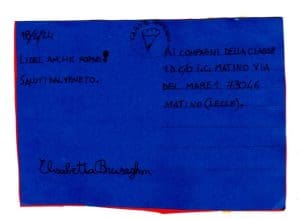 LIBRI ANCHE
SALUTI DAL VENETO.
Elisabetta
AI COMPAGNI DELLA CLASSE
1 D C/O I.C. MATINO VIA
DEL MARE 1 73046
MATINO (LECCE).